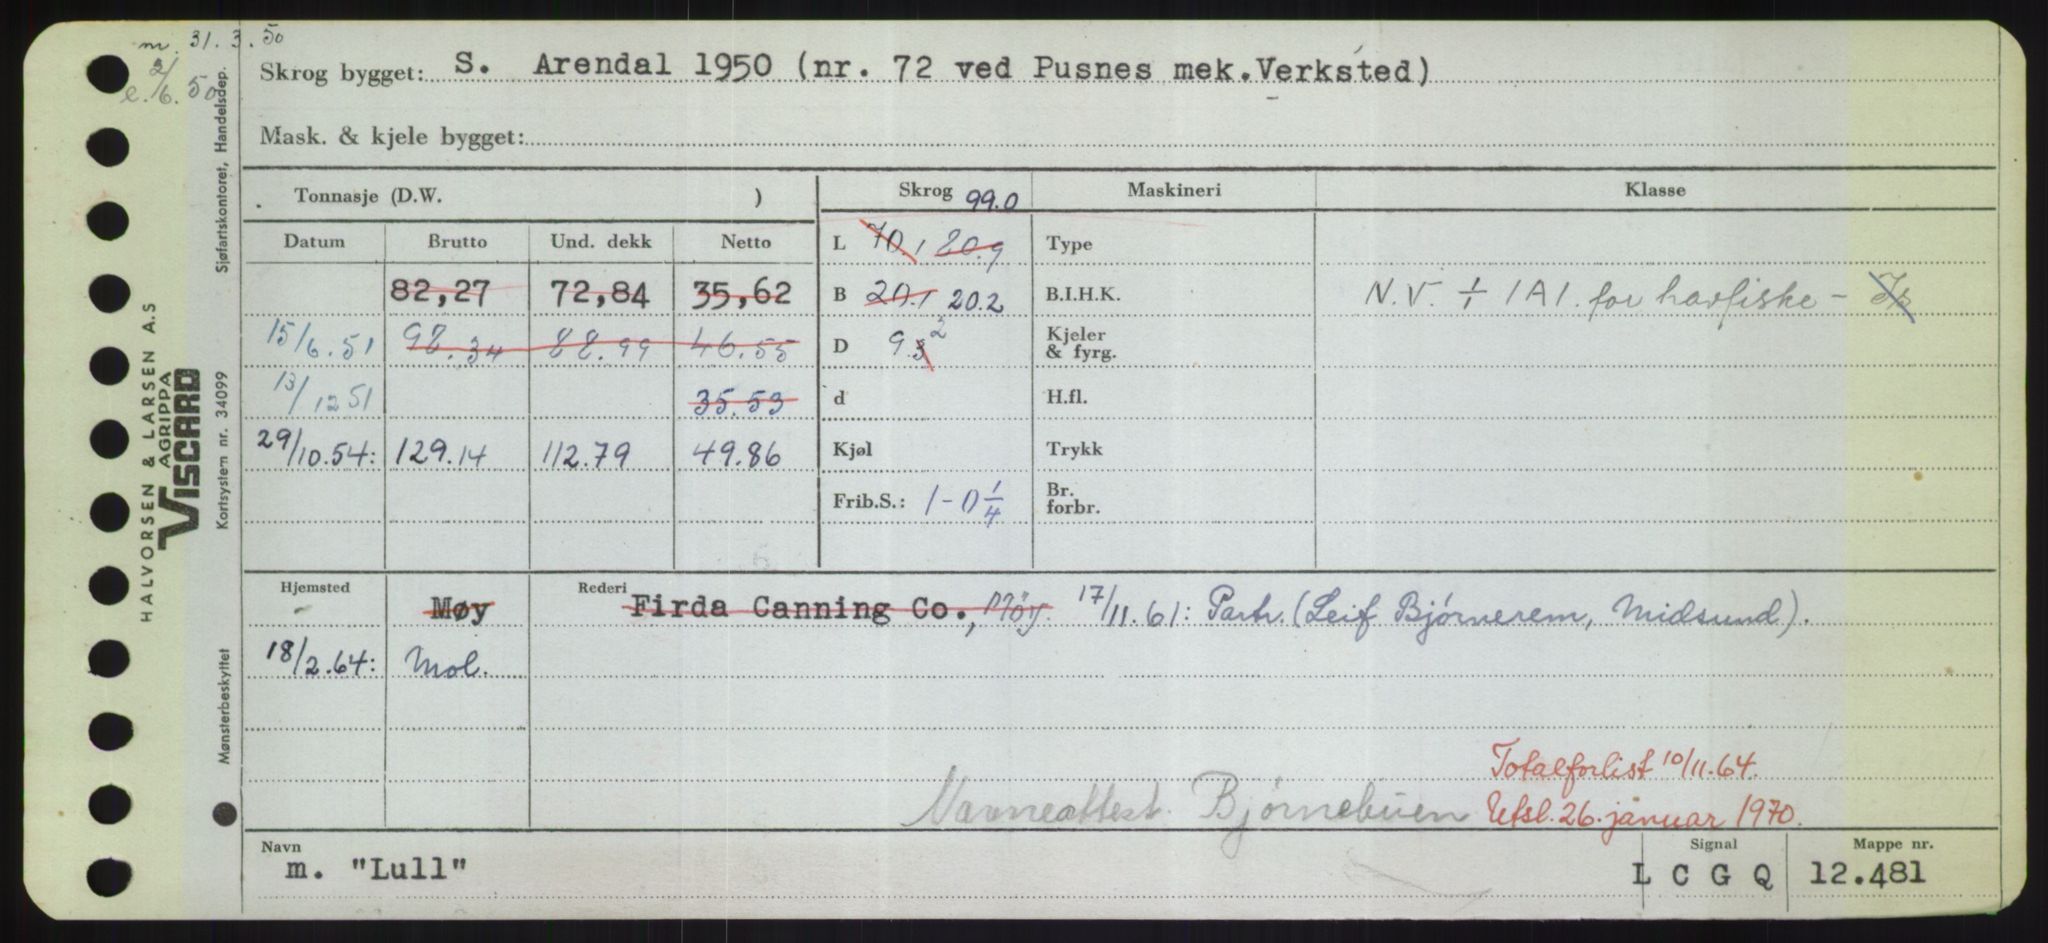 m. 31.3.50
e. 2/6.50
Skrog bygget: S. Arendal 1950 (nr. 72 ved Pusnes mek.Verksted)
Mask. & kjele bygget:
Tonnasje (D.W. )
Skrog 99.0
Maskineri
Klasse
Datum Brutto Und. dekk Netto
L 70.1 80.9
Type
82,27 72,84 35,62
B 20.1 20.2
B.I.H.K.
N.V. ⊹ 1A1. for havfiske -
15/6.51 98.34 88.99 46.55
D 9.3 2
Kjeler
& fyrg.
13/12 51 35.53
d
H.fl.
29/10.54: 129.14 112.79 49.86
Kjøl
Trykk
Frib.S.: 1-0 1/4
Br.
forbr.
Hjemsted
Rederi
- Møy Firda Canning Co., Möy. 17/11.61: Partr. (Leif Bjørnerem, Midsund).
18/2.64: Mol.
Totalforlist 10/11.64.
Navneattest. Bjørnebuen Utsl. 26. januar 1970.
Navn
m. "Lull"
Signal
L C G Q
Mappe nr.
12.481
HALVORSEN & LARSEN A.S
AGRIPPA
VISCARD
Mønsterbeskyttet Kortsystem nr. 34099 Sjøfartskontoret, Handelsdep.